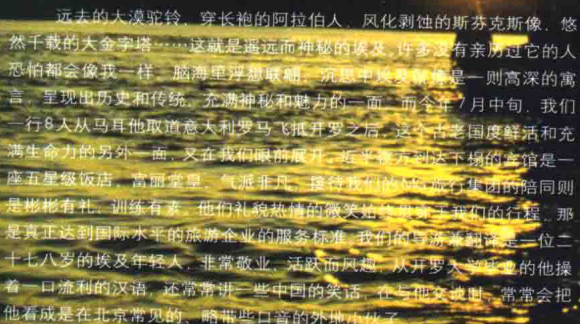 远去的大漠驼铃，穿长袍的阿拉伯人，风化剥蚀的斯芬克斯像，悠
然千载的大金字塔……这就是遥远而神秘的埃及，许多没有亲历过它的人
恐怕都会像我一样，脑海里浮想联翩，沉思中埃及就像是一则高深的寓
言，呈现出历史和传统，充满神秘和魅力的一面，而今年7月中旬，我们
一行8人从马耳他取道意大利罗马飞抵开罗之后，这个古老国度鲜活和充
满生命力的另外一面，又在我们眼前展开，近半夜才到达下榻的宾馆是一
座五星级饭店，富丽堂皇，气派非凡，接待我们的旅行集团的陪同则
是彬彬有礼，训练有素，他们礼貌热情的微笑始于我们的行程，那
是真正达到国际水平的旅游企业的服务标准，我们的导游兼翻译是一位二
十七八岁的埃及年轻人，非常敬业，活跃而风趣，从开罗大学毕业的他操
着一口流利的汉语，还常常讲一些中国的笑话，在与他交谈时，常常会把
他看成是在北京常见的、略带些口音的外地小伙子